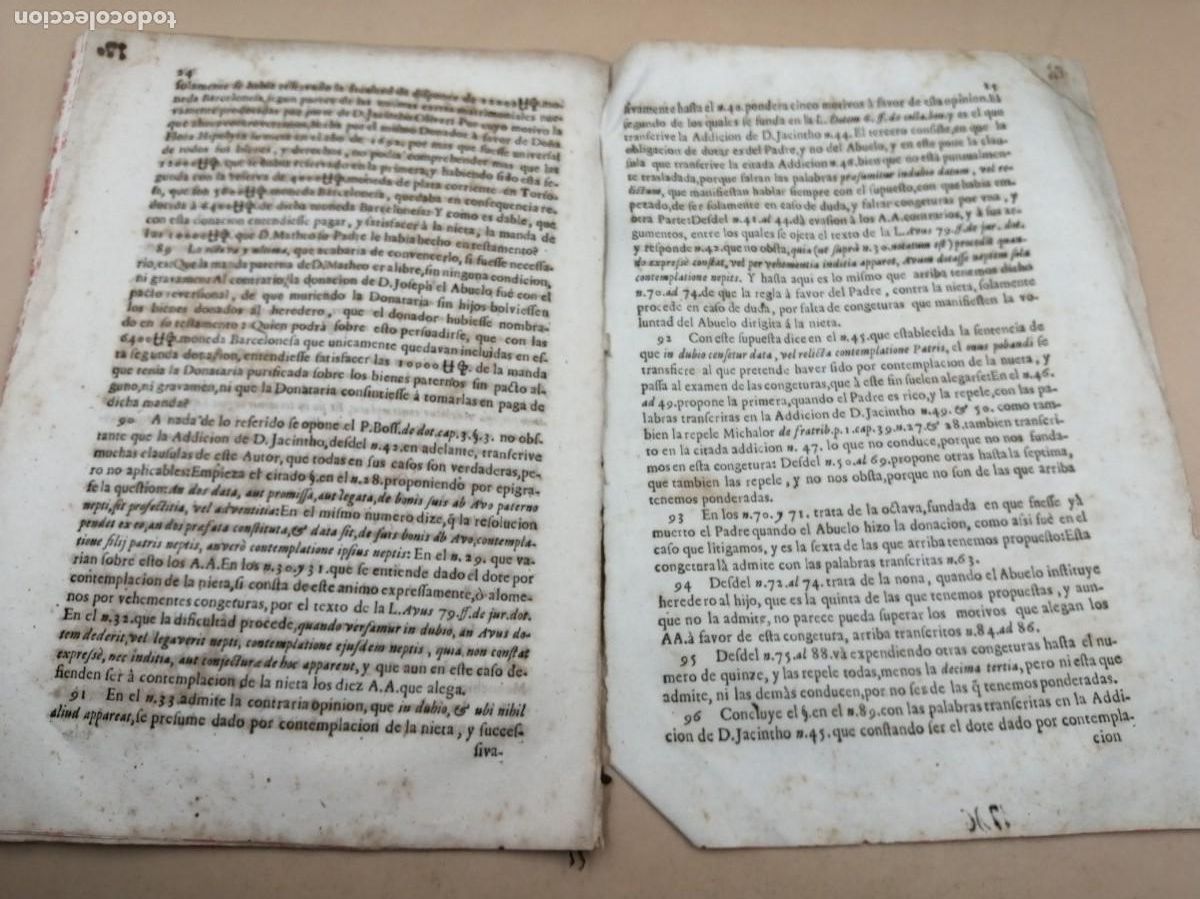 todocoleccion
24
solamente se havia reservado la facultad de disponer de 10000
neda Barcelonesa, segun parece de las
por parte de D. Jacintho Olivert Por cuyo motivo la
hecha por el mismo Donador à favor de Doña
de todos sus bienes, y derechos, no podia comprehender mas que las
10000 que se havia reservado en la primera, y habiendo sido esta se-
gunda con la reserva de 4000 moneda de plata corriente en Torto-
sa, que son moneda Barcelonesa, quedaba en consequencia re-
ducida à 6400 de dicha moneda Barcelonesa: Y como es dable, que
con esta donacion entendiesse pagar, y satisfacer à la nieta, la manda de
las 10000 que D. Matheo su Padre le havia hecho en testamento?
89 La nueva y ultima, que acabaria de convencerlo, si fuesse necessa-
rio, es: Que la manda paterna de D. Matheo era libre, sin ninguna condicion,
ni gravamen: Al contrario, la donacion de D. Joseph el Abuelo fuè con el
pacto reversional, de que muriendo la Donataria sin hijos bolviessen
los bienes donados al heredero, que el donador hubiesse nombra-
do en su testamento: Quien podrà sobre esto persuadirse, que con las
6400 moneda Barcelonesa que unicamente quedavan incluidas en es-
ta segunda donacion, entendiesse satisfacer las 10000 de la manda
que tenia la Donataria purificada sobre los bienes paternos sin pacto al-
guno, ni gravamen, ni que la Donataria consintiesse à tomarlas en paga de
dicha manda?
90 A nada de lo referido se opone el P. Boss. de dot. cap. 3. §. 3. no obs-
tante que la Addicion de D. Jacintho, desdel n. 42. en adelante, transcrive
muchas clausulas de este Autor, que todas en sus casos son verdaderas, pe-
ro no aplicables: Empieza el citado §. en el n. 28. proponiendo por epigra-
fe la question: An dos data, aut promissa, aut legata, de bonis suis ab Avo paterno
nepti, sit profectitia, vel adventitia: En el mismo numero dize, q̃ la resolucion
pendet ex eo, an dos præfata constituta, & data sit, de suis bonis ab Avo, contempla-
tione filij patris neptis, an verò contemplatione ipsius neptis: En el n. 29. que va-
rian sobre esto los A.A. En los n. 30. y 31. que se entiende dado el dote por
contemplacion de la nieta, si consta de este animo expressamente, ò alome-
nos por vehementes congeturas, por el texto de la L. Avus 79. ff. de jur. dot.
En el n. 32. que la dificultad procede, quando versamur in dubio, an Avus do-
tem dederit, vel legaverit nepti, contemplatione ejusdem neptis, quia non constat
expressè, nec inditia, aut conjecturæ de hoc apparent, y que aun en este caso de-
fienden ser à contemplacion de la nieta los diez A.A. que alega.
91 En el n. 33. admite la contraria opinion, que in dubio, & ubi nihil
aliud appareat, se presume dado por contemplacion de la nieta, y succes-
siva-
sivamente hasta el n. 40. pondera cinco motivos à favor de esta opinion. El
segundo de los quales se funda en la L. Dotem 6. ff. de colla. bon. y es el que
transcrive la Addicion de D. Jacintho n. 44. El tercero consiste, en que la
obligacion de dotar es del Padre, y no del Abuelo, y en este pone la clau-
sula que transcrive la citada Addicion n. 46. bien que no està puntualmen-
te trasladada, porque faltan las palabras præsumitur in dubio datum, vel re-
lictum, que manifiestan hablar siempre con el supuesto, con que habia em-
pezado, de ser solamente en caso de duda, y faltar congeturas por una, y
otra Parte: Desdel n. 41. al 44. dà evasion à los A.A. contrarios, y à sus ar-
gumentos, entre los quales se ojeta el texto de la L. Avus 79. ff. de jur. dot.
y responde n. 42. que no obsta, quia (ut suprà n. 30. notatum est) procedit quan-
do expressè constat, vel per vehementia inditia apparet, Avum dotasse neptim sola
contemplatione neptis. Y hasta aqui es lo mismo que arriba tenemos dicho
n. 70. ad 74. de que la regla à favor del Padre, contra la nieta, solamente
procede en caso de duda, por falta de congeturas que manifiesten la vo-
luntad del Abuelo dirigita à la nieta.
92 Con este supuesta dice en el n. 45. que establecida la sentencia de
que in dubio censetur data, vel relicta contemplatione Patris, el onus probandi se
transfiere al que pretende haver sido por contemplacion de la nueta, y
passa al examen de las congeturas, que à este fin suelen alegarse: En el n. 46.
ad 49. propone la primera, quando el Padre es rico, y la repele, con las pa-
labras transcritas en la Addicion de D. Jacintho n. 49. & 50. como tam-
bien la repele Michalor de fratrib. p. 1. cap. 39. n. 27. & 28. tambien transcri-
to en la citada addicion n. 47. lo que no conduce, porque no nos funda-
mos en esta congetura: Desdel n. 50. al 69. propone otras hasta la septima,
que tambien las repele, y no nos obsta, porque no son de las que arriba
tenemos ponderadas.
93 En los n. 70. y 71. trata de la octava, fundada en que fuesse yà
muerto el Padre quando el Abuelo hizo la donacion, como assi fuè en el
caso que litigamos, y es la sexta de las que arriba tenemos propuesto: Esta
congetura là admite con las palabras transcritas n. 63.
94 Desdel n. 72. al 74. trata de la nona, quando el Abuelo instituye
heredero al hijo, que es la quinta de las que tenemos propuestas, y aun-
que no la admite, no parece pueda superar los motivos que alegan los
AA. à favor de esta congetura, arriba transcritos n. 84. ad 86.
95 Desdel n. 75. al 88. và expendiendo otras congeturas hasta el nu-
mero de quinze, y las repele todas, menos la decima tertia, pero ni esta que
admite, ni las demàs conducen, por no ses de las q̃ tenemos ponderadas.
96 Concluye el §. en el n. 89. con las palabras transcritas en la Addi-
cion de D. Jacintho n. 45. que constando ser el dote dado por contempla-
cion